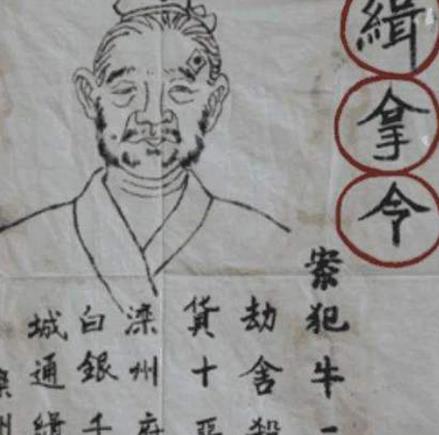 緝拿令
案犯牛
劫舍殺
貨十惡
滦州府
白銀千
城通緝